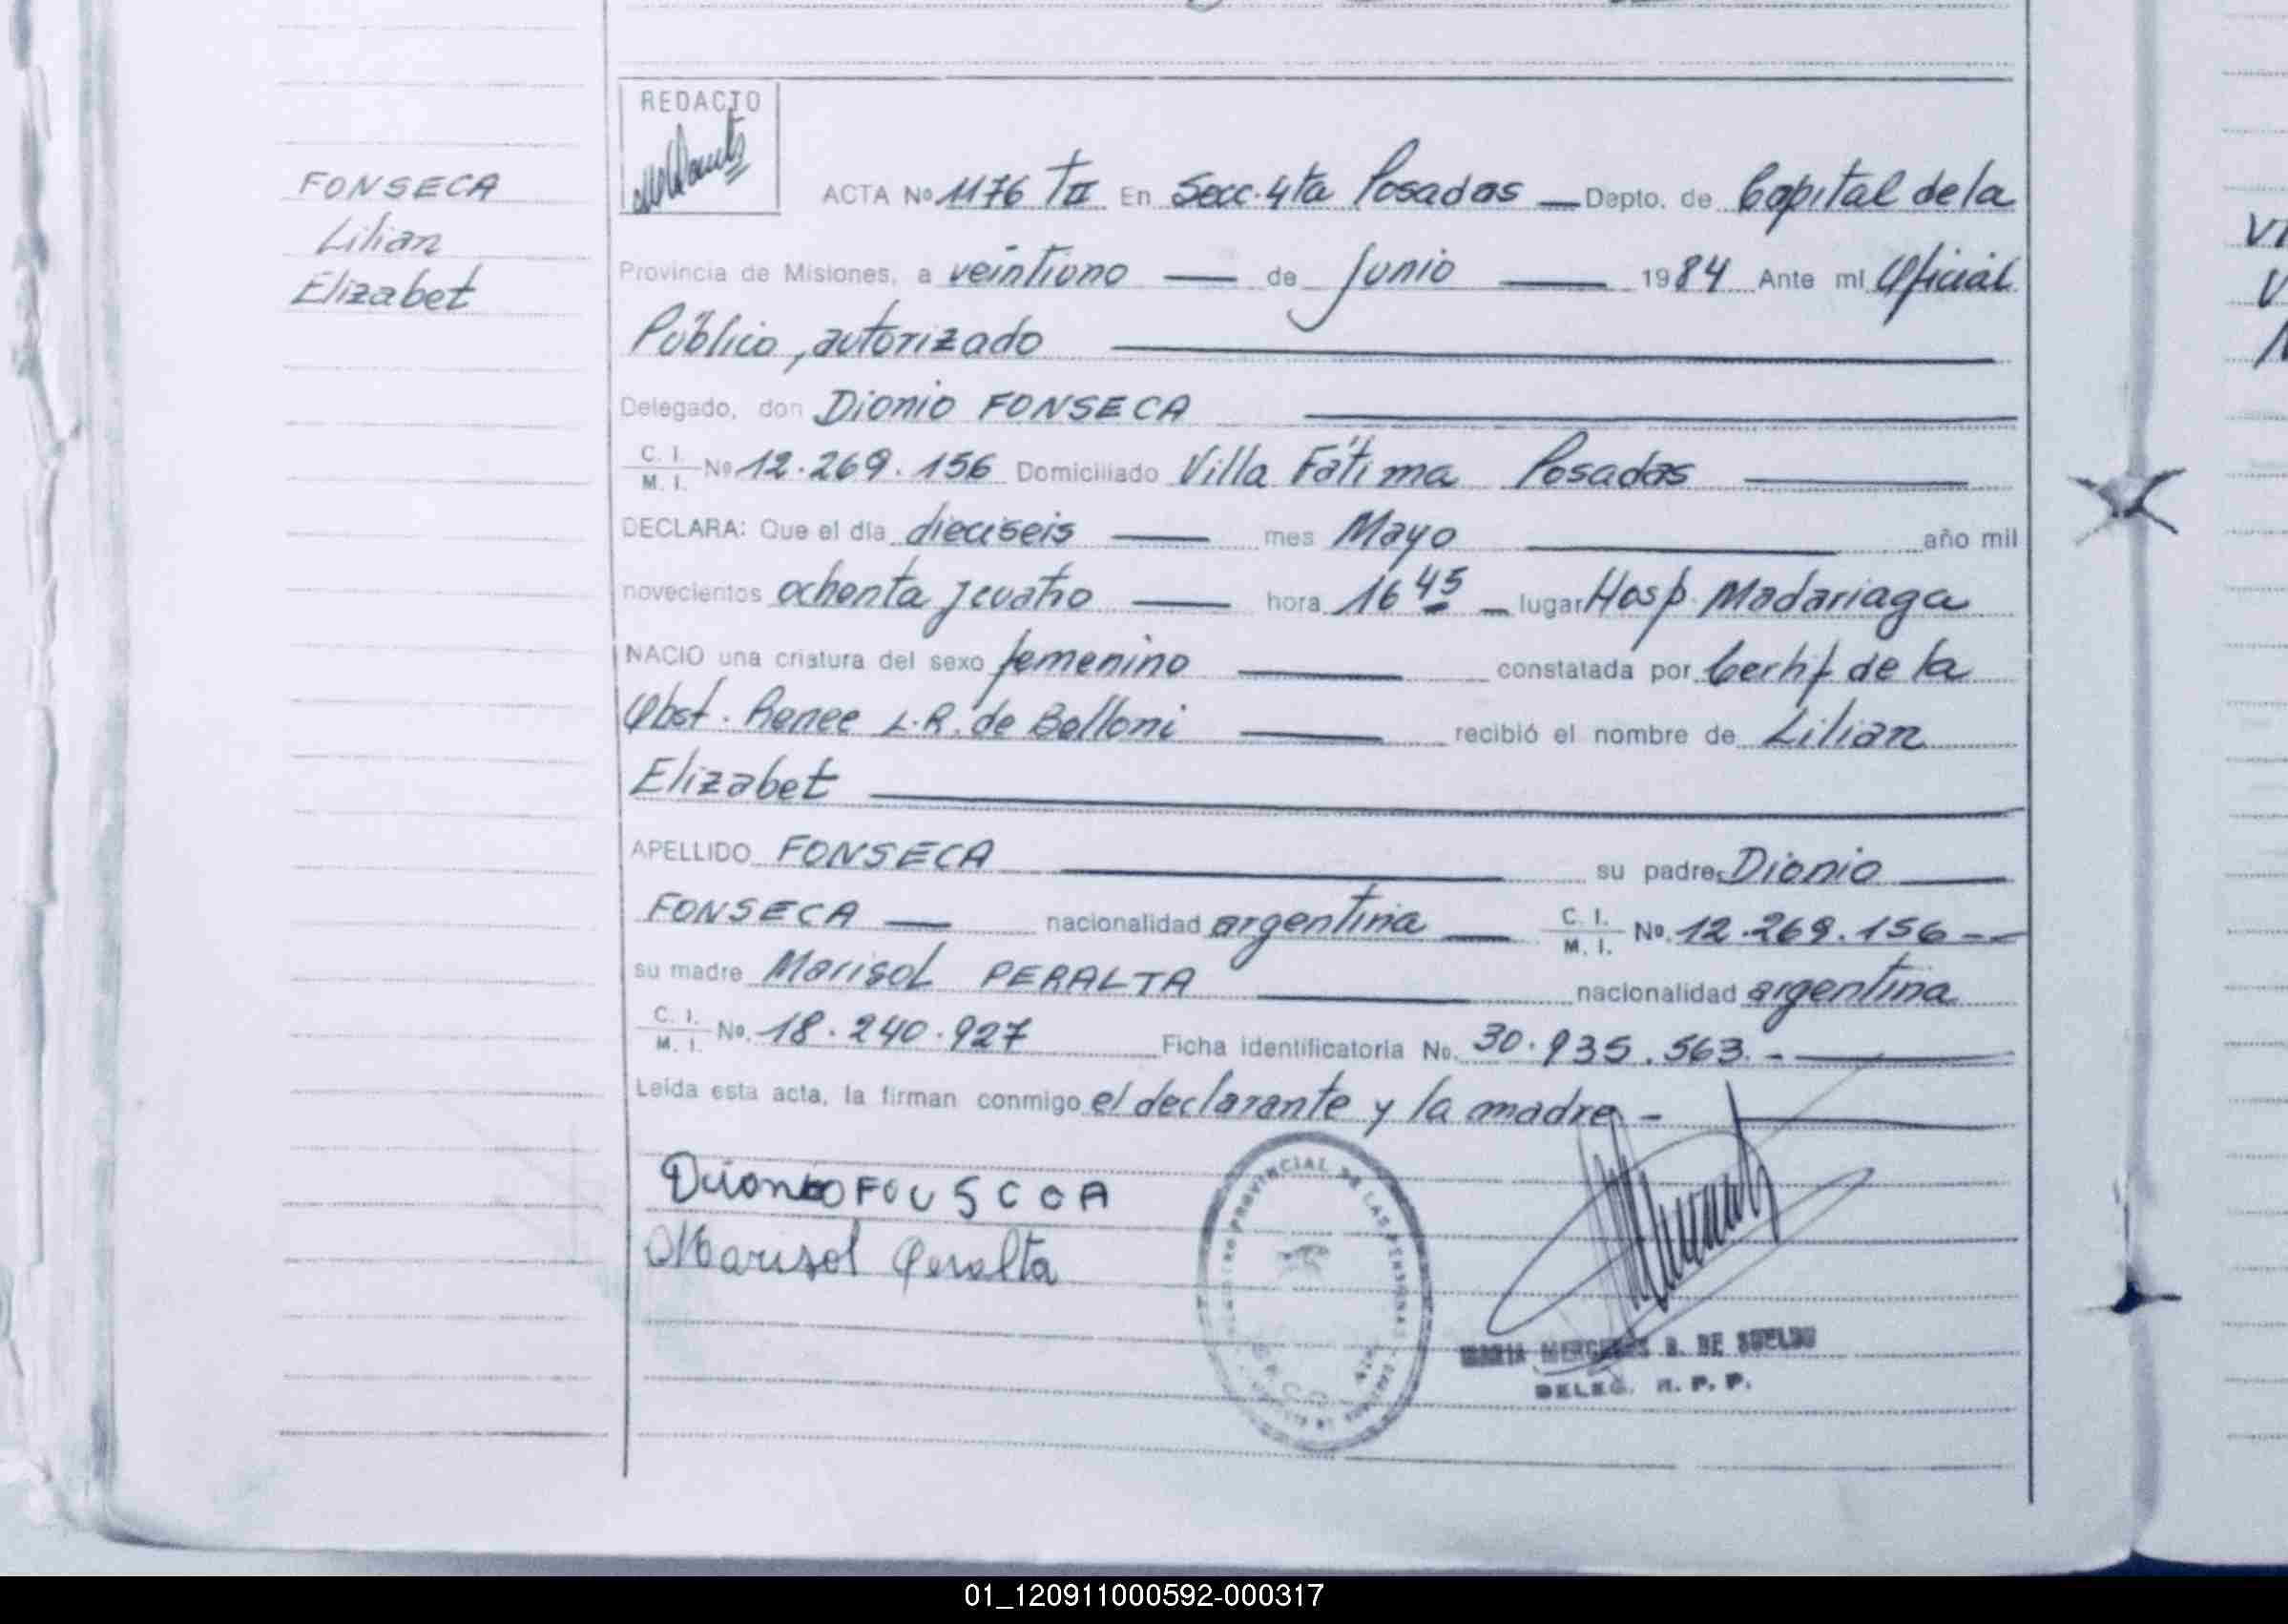 REDACTO
FONSECA
Lilian
Elizabet
ACTA Nº 1176 TII En Secc. 4ta Posadas — Depto. de Capital de la
Provincia de Misiones, a veintiuno — de Junio — 1984 Ante mi Oficial
Público, autorizado —
Delegado, don Dionio FONSECA —
C. I. / M. I. Nº 12.269.156 Domiciliado Villa Fátima Posadas —
DECLARA: Que el día dieciseis — mes Mayo — año mil
novecientos ochenta y cuatro — hora 16 45 — lugar Hosp. Madariaga
NACIO una criatura del sexo femenino — constatada por Certif de la
Obst. Renee L.R. de Belloni — recibió el nombre de Lilian
Elizabet —
APELLIDO FONSECA — su padre Dionio —
FONSECA — nacionalidad argentina — C. I. / M. I. Nº 12.269.156 -
su madre Marisol PERALTA — nacionalidad argentina
C. I. / M. I. No. 18.240.927 Ficha identificatoria No. 30.935.563. - —
Leída esta acta, la firman conmigo el declarante y la madre - —
FOUSCOA
Marisol Peralta
PROVINCIAL DE LAS PERSONAS
MARIA MERCEDES B. DE SUELDO
DELEG. R. P. P.
01_120911000592-000317